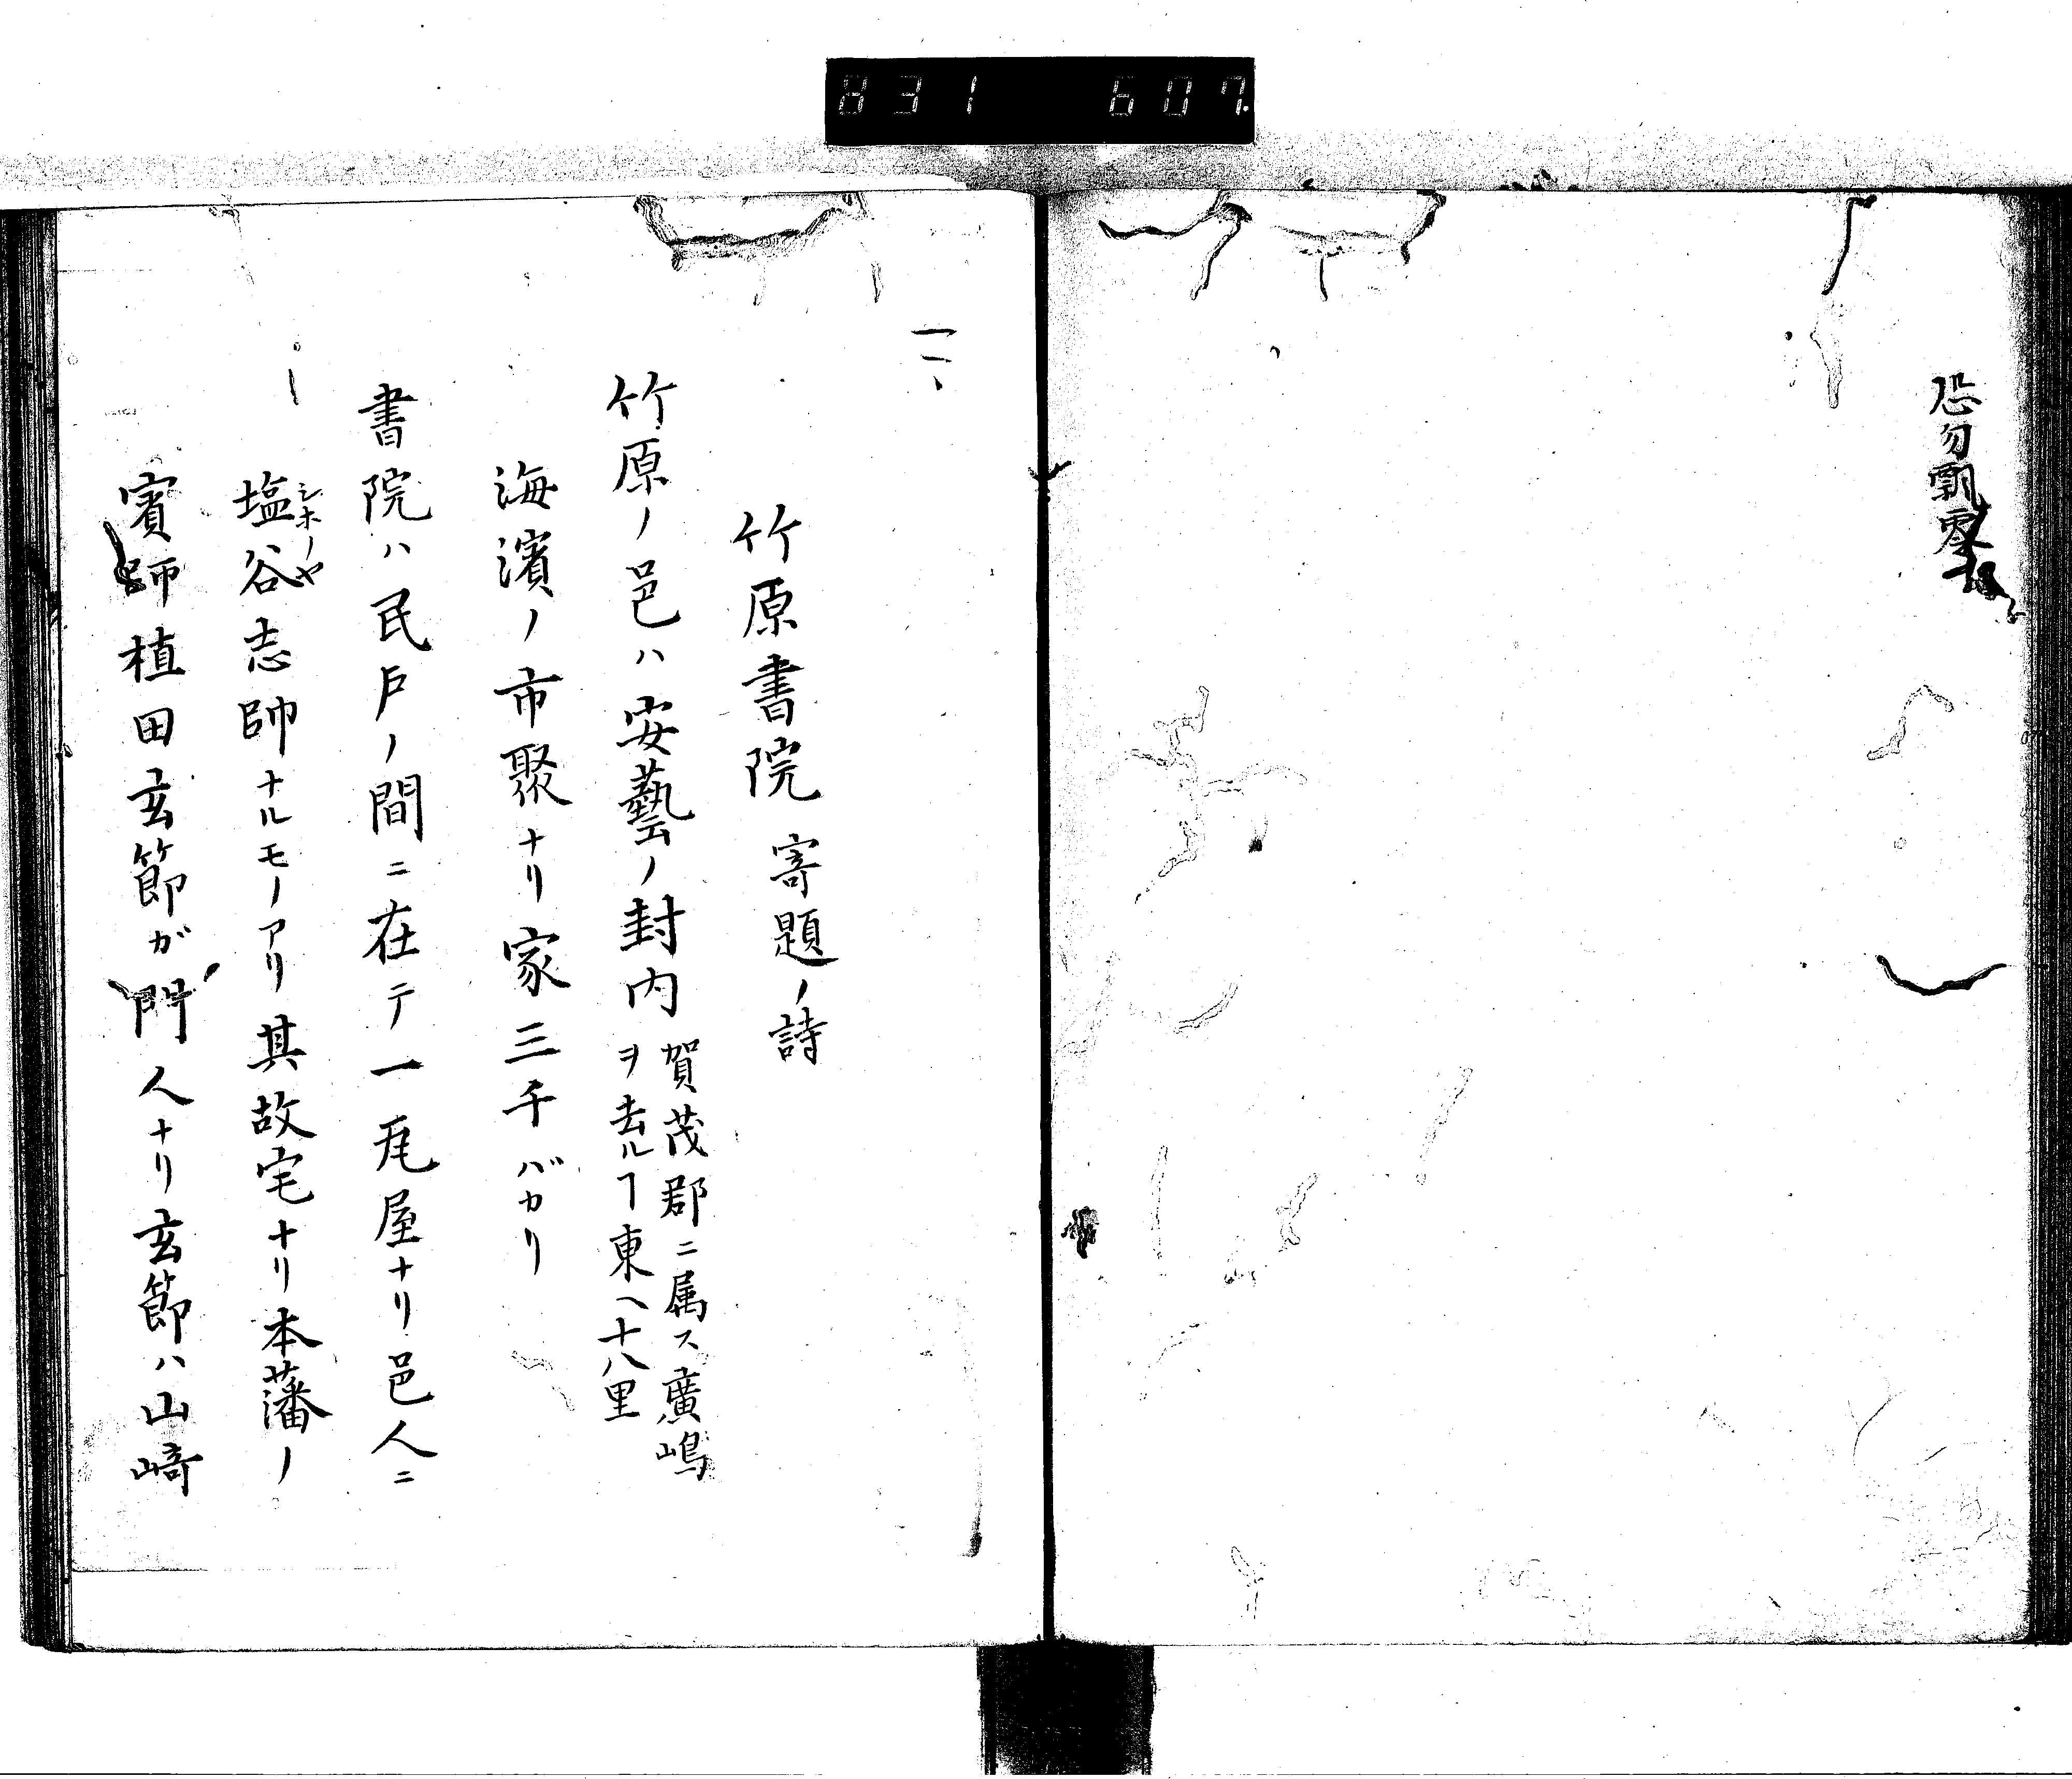 831 607.
恐勿
竹原書院寄題ノ詩
竹原ノ邑ハ安藝ノ封内
賀茂郡ニ属ス廣嶋
ヲ去ルヿ東ヘ十八里
海濱ノ市聚ナリ家三千バカリ
書院ハ民戸ノ間ニ在テ一瓦屋ナリ邑人ニ
シホノヤ
塩谷志帥ナルモノアリ其故宅ナリ本藩ノ
賓師植田玄節ガ門人ナリ玄節ハ山﨑